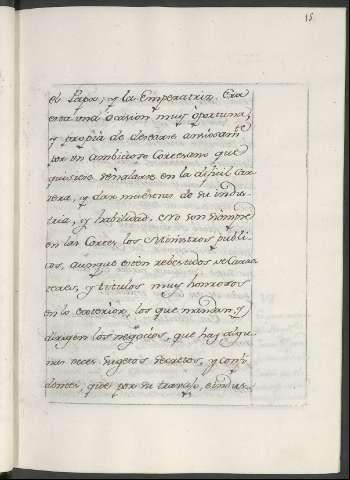 15
el Papa, y la Emperatriz. Era
esta una ocasion muy oportuna,
y propia de desearse ansiosam.te
por un ambicioso Cortesano que
quisiese señalarse en la dificil car
rera, y dar muestras de su indus
tria, y habilidad. No son siempre
en las Cortes los Ministros publi
cos, aunque esten rebestidos de Carac
teres, y titulos muy honrosos
en lo exterior, los que mandan, y
dirigen los negocios, que hay algu
nas veces sugetos secretos, y confi
dentes, que por su travajo, e indus-